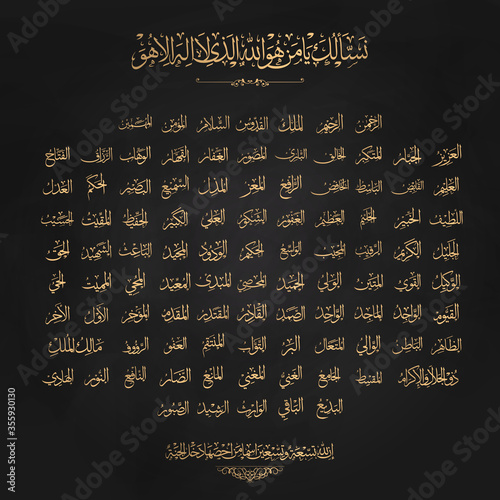 نسألك يا من هو الله الذي لا إله إلا هو
الرحمن الرحيم الملك القدوس السلام المؤمن المهيمن
العزيز الجبار المتكبر الخالق البارئ المصور الغفار القهار الوهاب الرزاق الفتاح
العليم القابض الباسط الخافض الرافع المعز المذل السميع البصير الحكم العدل
اللطيف الخبير الحليم العظيم الغفور الشكور العلي الكبير الحفيظ المقيت الحسيب
الجليل الكريم الرقيب المجيب الواسع الحكيم الودود المجيد الباعث الشهيد الحق
الوكيل القوي المتين الولي الحميد المحصي المبدئ المعيد المحيي المميت الحي
القيوم الواجد الماجد الواحد الصمد القادر المقتدر المقدم المؤخر الأول الآخر
الظاهر الباطن الوالي المتعال البر التواب المنتقم العفو الرؤوف مالك الملك
ذو الجلال والإكرام المقسط الجامع الغني المغني المانع الضار النافع النور الهادي
البديع الباقي الوارث الرشيد الصبور
إن لله تسعة وتسعين اسما من أحصاها دخل الجنة
Adobe Stock | #355930130